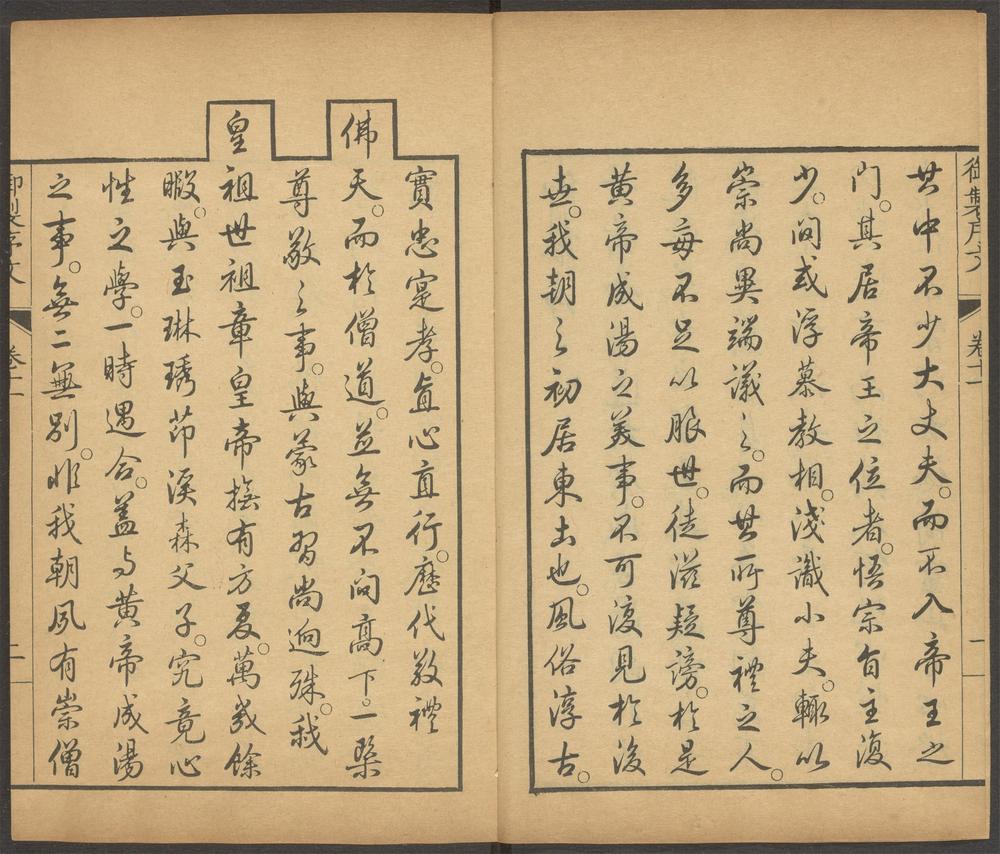 御製序文
卷十一
一
其中不少大丈夫。而不入帝王之
門。其居帝王之位者。悟宗旨主復
少。間或浮慕教相。淺識小夫。輒以
崇尚異端議之。而其所尊禮之人。
多每不足以服世。徒滋疑謗。於是
黃帝成湯之美事。不可復見於後
世。我朝之初居東土也。風俗淳古。
實忠寔孝。直心直行。歷代敬禮
佛
天。而於僧道。並無不問高下。一槩
尊敬之事。與蒙古習尚迥殊。我
皇
祖世祖章皇帝撫有方夏。萬幾餘
暇。與玉琳琇茆溪森父子。究竟心
性之學。一時遇合。蓋与黃帝成湯
之事。無二無別。非我朝夙有崇僧
御製序文
卷十一
二